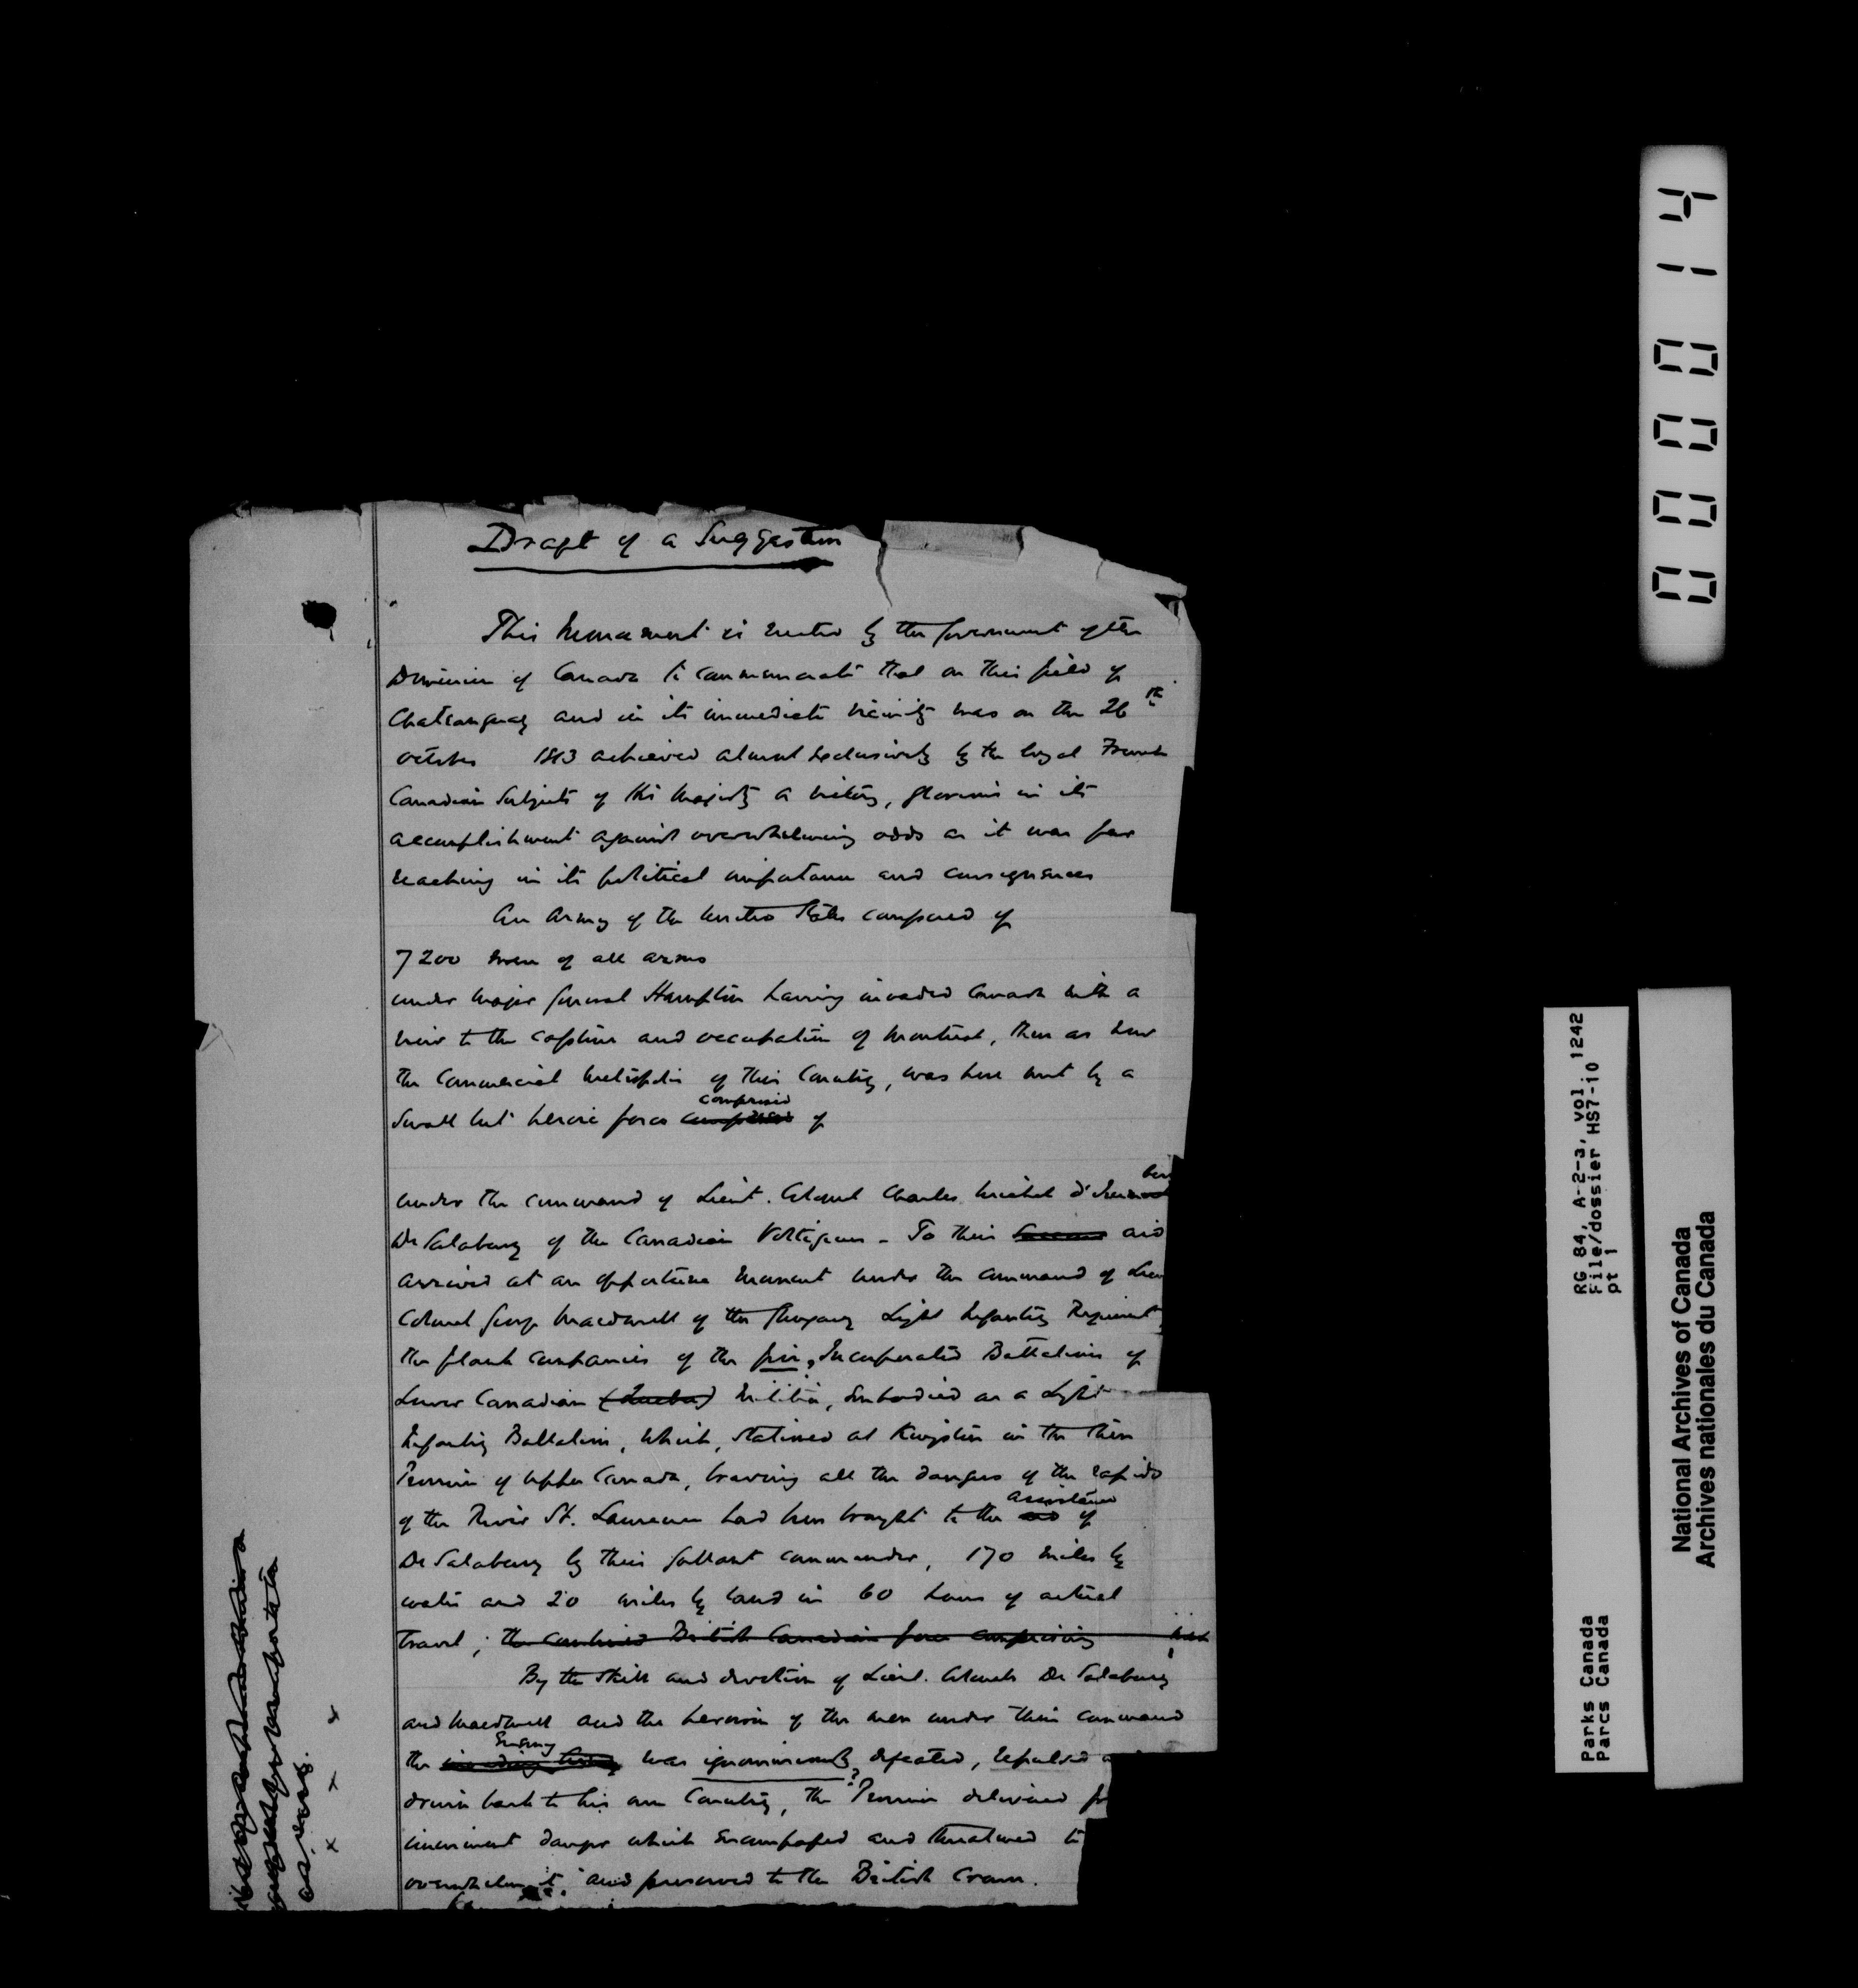 Draft of a Suggestion
This Monument is erected by the Government of the
Dominion of Canada to commemorate that on this field of
Chateauguay and in its immediate vicinity was on the 26th
October 1813 achieved almost exclusively by the loyal French
Canadian Subjects of His Majesty a victory, glorious in its
accomplishment against overwhelming odds as it was far
reaching in its political importance and consequences
An Army of the United States composed of
7200 men of all arms
under Major General Hampton having invaded Canada with a
view to the capture and occupation of Montreal, then as now
the Commercial Metropolis of this Country, was here met by a
comprised
small but heroic force composed of
under the command of Lieut. Colonel Charles Michel d'Irum
De Salaberry of the Canadian Voltigeurs - To their aid
arrived at an opportune moment under the command of Lieu
Colonel George Macdonell of the Glengary Light Infantry Regiment,
the flank companies of the five, Incorporated Battalions of
Lower Canadian (Quebec) Militia, embodied as a Light
Infantry Battalion, which, stationed at Kingston in the then
Province of Upper Canada, braving all the dangers of the rapids
assistance
of the River St. Lawrence had been brought to the aid of
De Salaberry by their gallant commander, 170 miles by
water and 20 miles by land in 60 hours of actual
travel; the combined British Canadian force comprising
By the skill and devotion of Lieut. Colonels De Salaberry
and Macdonell and the heroism of the men under their command
Enemy
the invading Army was ignominiously? defeated, repulsed a
driven back to his own Country, the Province delivered fr
imminent danger which encompassed and threatened to
overwhelm it, and preserved to the British Crown.
as very
x x x
0000114
RG 84, A-2-3, vol. 1242
File/dossier HS7-10
pt 1
Parks Canada
Parcs Canada
National Archives of Canada
Archives nationales du Canada